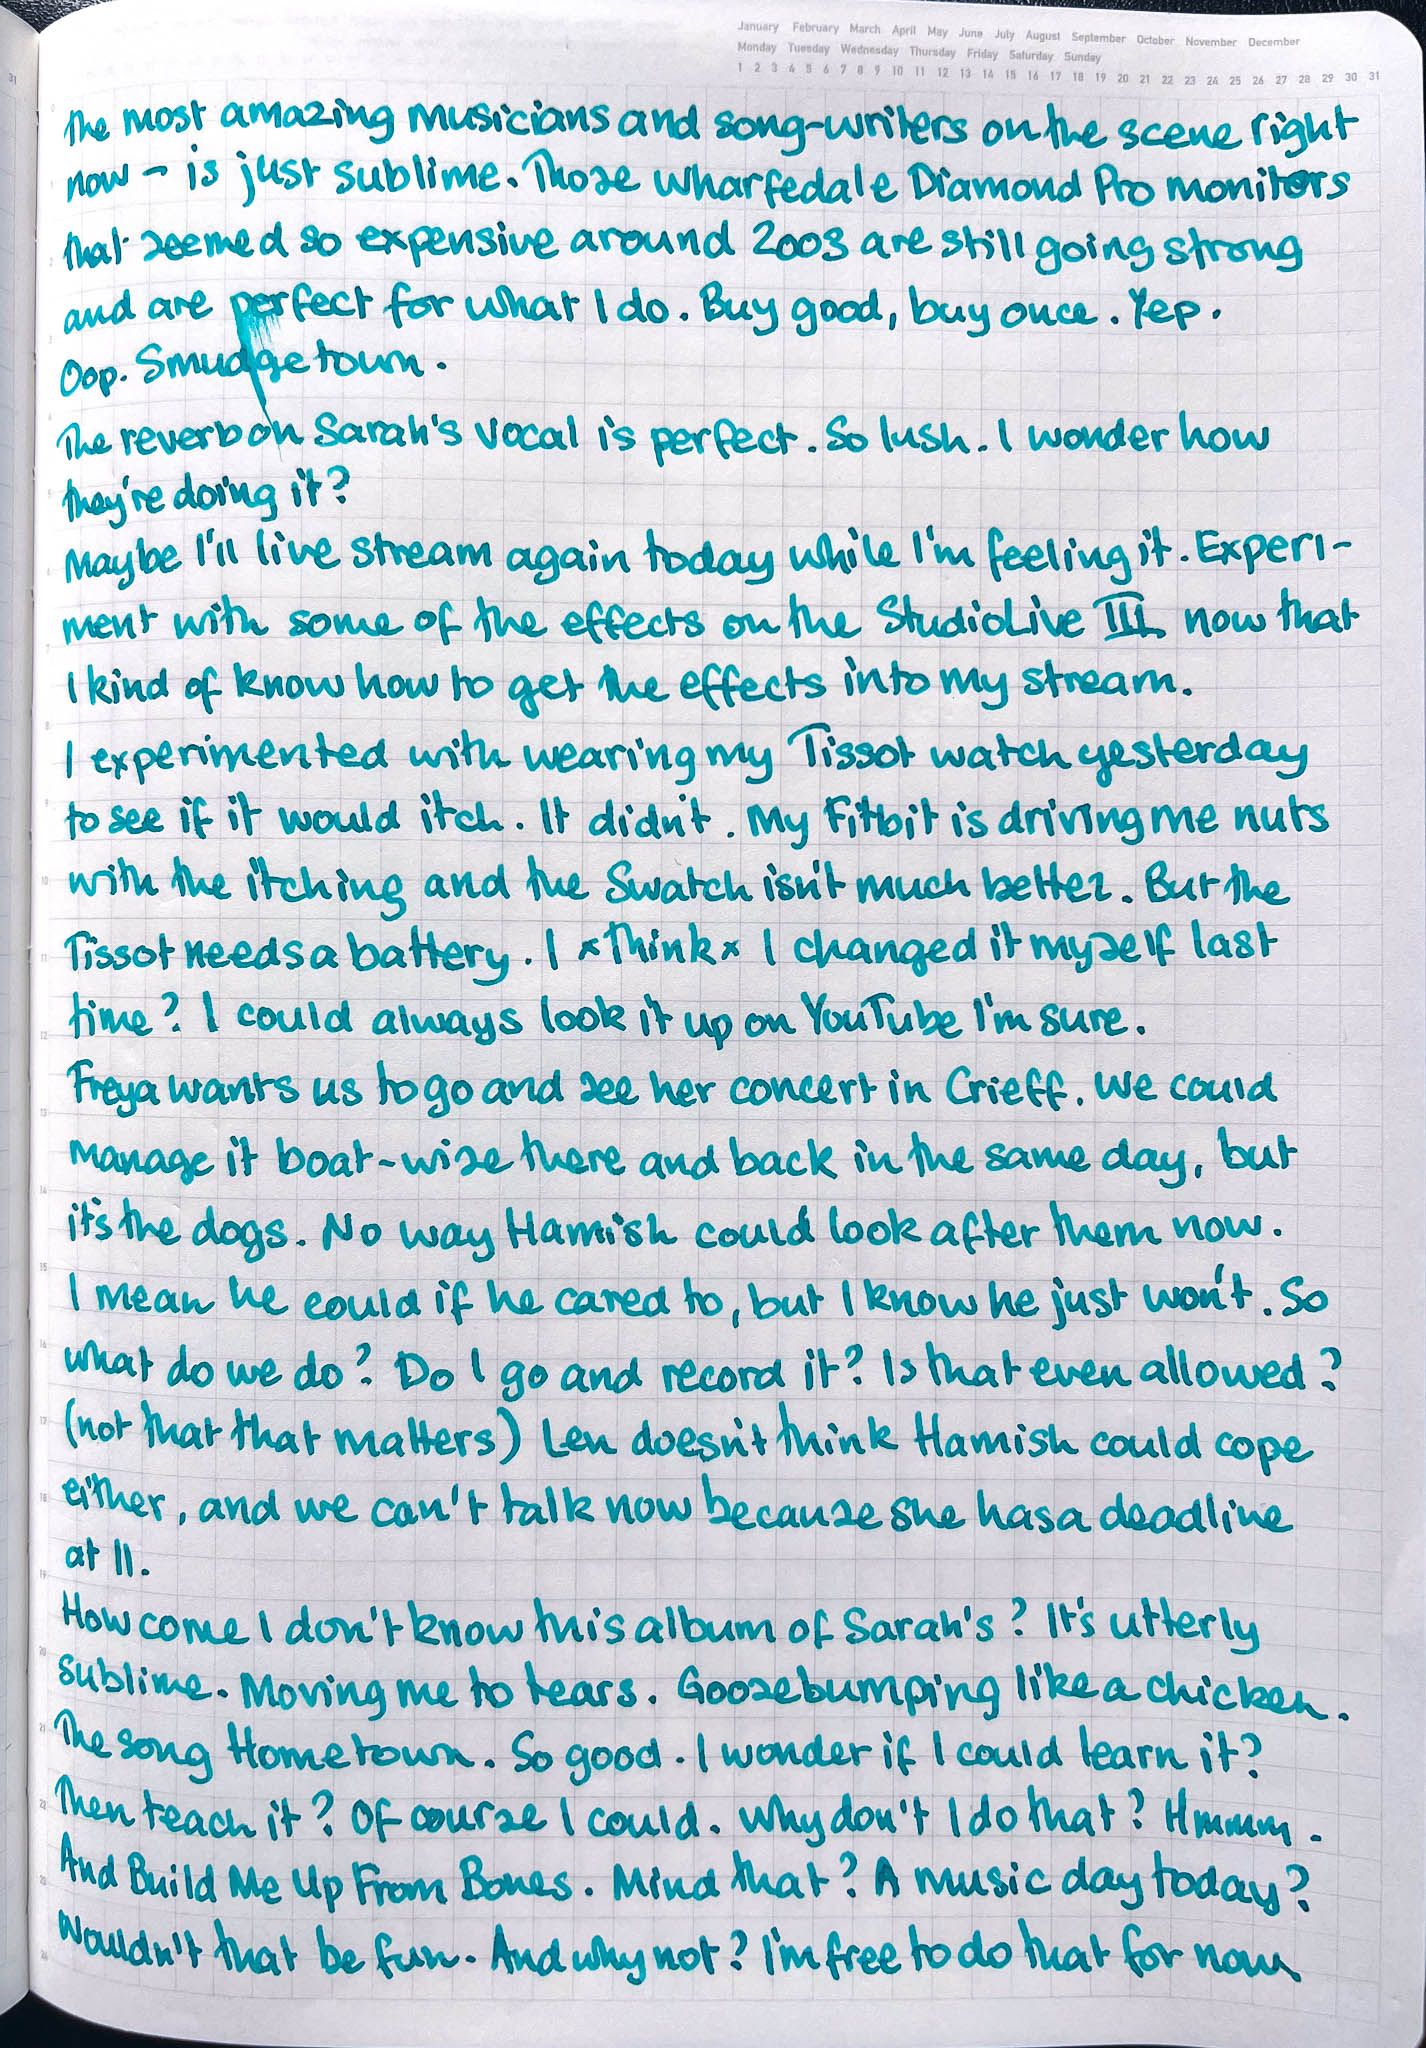 January February March April May June July August September October November December
Monday Tuesday Wednesday Thursday Friday Saturday Sunday
1 2 3 4 5 6 7 8 9 10 11 12 13 14 15 16 17 18 19 20 21 22 23 24 25 26 27 28 29 30 31
The most amazing musicians and song-writers on the scene right
now – is just sublime. Those Wharfedale Diamond Pro monitors
that seemed so expensive around 2003 are still going strong
and are perfect for what I do. Buy good, buy once. Yep.
Oop. Smudgetown.
The reverb on Sarah's vocal is perfect. So lush. I wonder how
they're doing it?
Maybe I'll live stream again today while I'm feeling it. Experi-
ment with some of the effects on the StudioLive III now that
I kind of know how to get the effects into my stream.
I experimented with wearing my Tissot watch yesterday
to see if it would itch. It didn't. My Fitbit is driving me nuts
with the itching and the Swatch isn't much better. But the
Tissot needs a battery. I *think* I changed it myself last
time? I could always look it up on YouTube I'm sure.
Freya wants us to go and see her concert in Crieff. We could
manage it boat-wise there and back in the same day, but
it's the dogs. No way Hamish could look after them now.
I mean he could if he cared to, but I know he just won't. So
what do we do? Do I go and record it? Is that even allowed?
(not that that matters) Len doesn't think Hamish could cope
either, and we can't talk now because she has a deadline
at 11.
How come I don't know this album of Sarah's? It's utterly
sublime. Moving me to tears. Goosebumping like a chicken.
The song Hometown. So good. I wonder if I could learn it?
Then teach it? Of course I could. Why don't I do that? Hmmm.
And Build Me Up From Bones. Mind that? A music day today?
Wouldn't that be fun. And why not? I'm free to do that for now